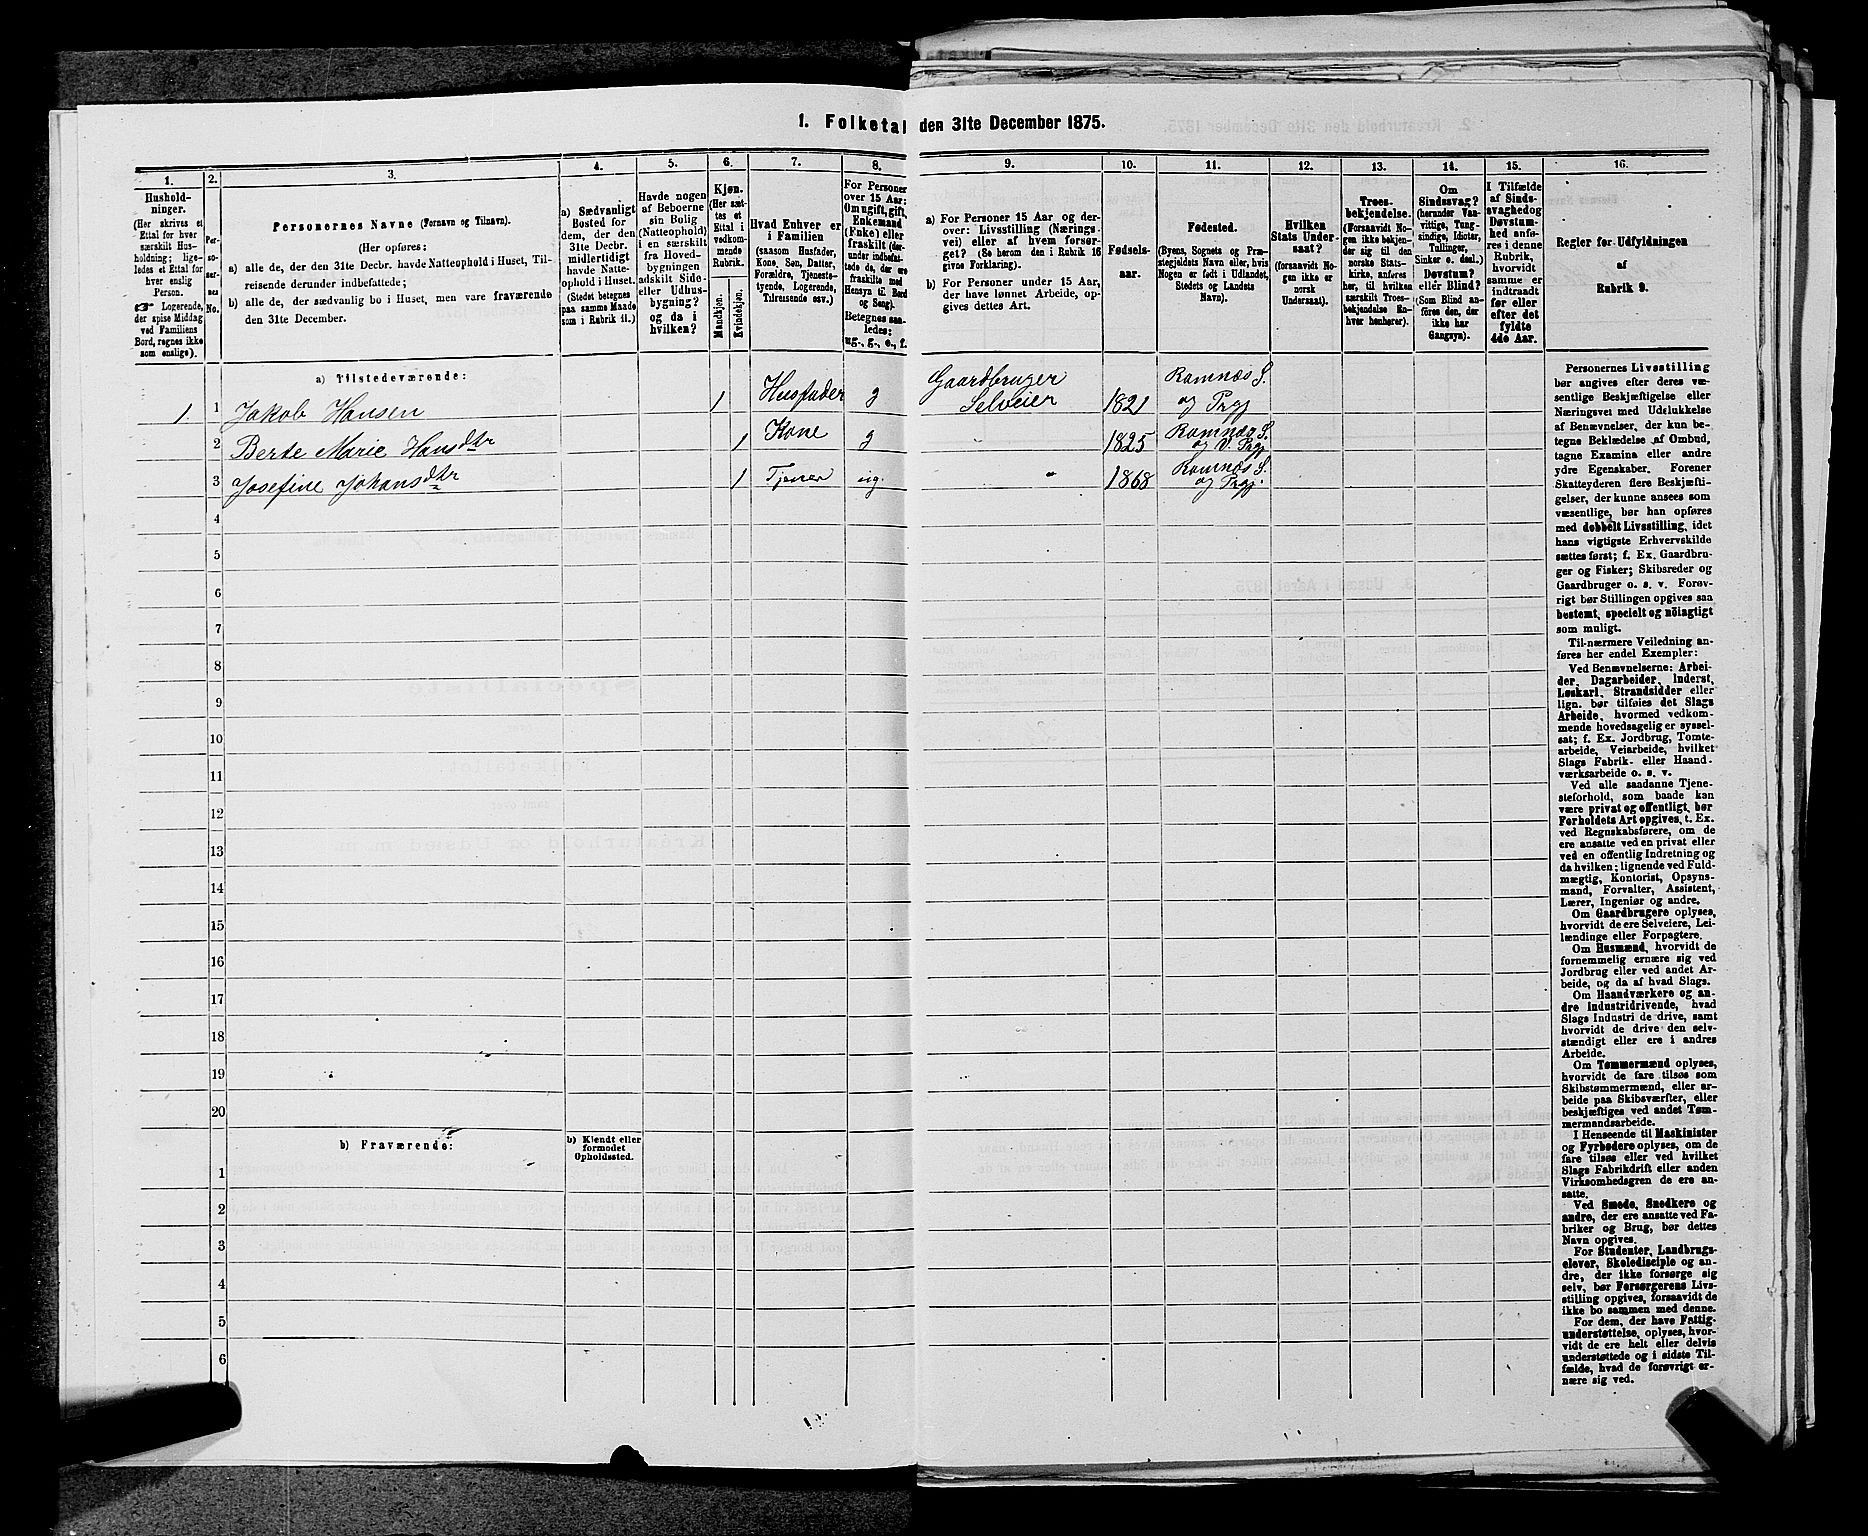 1. Folketal den 31te December 1875.
1.
Hushold-
ninger.
(Her skrives et
Ettal for hver
særskilt Hus-
holdning; lige-
ledes et Ettal for
hver enslig
Person.
Logerende,
der spise Middag
ved Familiens
Bord, regnes ikke
som enslige).
2.
Per-
soner-
nes
No.
3.
Personernes Navne (Fornavn og Tilnavn).
(Her opføres:
a) alle de, der den 31te Decbr. havde Natteophold i Huset, Til-
reisende derunder indbefattede;
b) alle de, der sædvanlig bo i Huset, men vare fraværende
den 31te December.
4.
a) Sædvanligt
Bosted for
dem, der den
31te Decbr.
midlertidigt
havde Natte-
ophold i Huset.
(Stedet betegnes
paa samme Maade
som i Rubrik 11.)
5.
Havde nogen
af Beboerne
sin Bolig
(Natteophold)
i en særskilt
fra Hoved-
bygningen
adskilt Side-
eller Udhus-
bygning?
og da i
hvilken?
6.
Kjøn.
(Her sæt-
tes et
Ettal i
vedkom-
mende
Rubrik.
Mandkjøn.
Kvindekjøn.
7.
Hvad Enhver er
i Familien
(saasom Husfader,
Kone, Søn, Datter,
Forældre, Tjeneste-
tyende, Logerende,
Tilreisende osv.)
8.
For Personer
over 15 Aar:
Om ugift, gift,
Enkemand
(Enke) eller
fraskilt (der-
under indbefat-
tede da, der ere
fraskilte med
Hensyn til Bord
og Seng).
Betegnes saa-
ledes:
ug., g., e., f.
9.
a) For Personer 15 Aar og der-
over: Livsstilling (Nærings-
vei) eller af hvem forsør-
get? (Se herom den i Rubrik 16
givne Forklaring).
b) For Personer under 15 Aar,
der have lønnet Arbeide, op-
gives dettes Art.
10.
Fødsels-
aar.
11.
Fødested.
(Byens, Sognets og Præ-
stegjeldets Navn eller, hvis
Nogen er født i Udlandet,
Stedets og Landets
Navn).
12.
Hvilken
Stats Under-
saat?
(forsaavidt No-
gen ikke er
norsk
Undersaat).
13.
Troes-
bekjendelse.
(Forsaavidt No-
gen ikke bekjen-
der sig til den
norske Stats-
kirke, anføres
her, til hvilken
særskilt Troes-
bekjendelse En-
hver henhører).
14.
Om
Sindssvag?
(herunder Van-
vittige, Tung-
sindige, Idioter,
Tullinger,
Sinker o. desl.)
Døvstum?
eller Blind?
(Som Blind an-
føres den, der
ikke har
Gangsyn).
15.
I Tilfælde
af Sinds-
svaghed og
Døvstum-
hed anfø-
res i denne
Rubrik,
hvorvidt
samme er
indtraadt
før eller
efter det
fyldte
4de Aar.
16.
Regler for Udfyldningen
af
Rubrik 9.
a) Tilstedeværende:
1 1 Jakob Hansen 1 Husfader g Gaardbruger Selveier 1821 Ramnæs S. og Prgj
2 Berte Marie Hansdtr 1 Kone g „ 1825 Ramnæs S. og V. Prgj
3 Josefine Johansdtr 1 Tjener ug. „ 1868 Ramnæs S. og Prgj.
4
5
6
7
8
9
10
11
12
13
14
15
16
17
18
19
20
b) Fraværende:
b) Kjendt eller
formodet
Opholdssted.
1
2
3
4
5
6
Personernes Livsstilling
bør angives efter deres væ-
sentlige Beskjæftigelse eller
Næringsvei med Udelukkelse
af Benævnelser, der kun be-
tegne Beklædelse af Ombud,
tagne Examina eller andre
ydre Egenskaber. Forener
Skatteyderen flere Beskjæfti-
gelser, der kunne ansees som
væsentlige, bør han opføres
med dobbelt Livsstilling, idet
hans vigtigste Erhvervskilde
sættes først; f. Ex. Gaardbru-
ger og Fisker; Skibsreder og
Gaardbruger o. s. v. Forøv-
rigt bør Stillingen opgives saa
bestemt, specielt og nöiagtigt
som muligt.
Til nærmere Veiledning an-
føres her endel Exempler:
Ved Benævnelserne: Arbei-
der, Dagarbeider, Inderst,
Løskarl, Strandsidder eller
lign. bør tilføies det Slags
Arbeide, hvormed vedkom-
mende hovedsagelig er syssel-
sat; f. Ex. Jordbrug, Tomte-
arbeide, Veiarbeide, hvilket
Slags Fabrik- eller Haand-
værksarbeide o. s. v.
Ved alle saadanne Tjene-
steforhold, som baade kan
være privat og offentligt, bør
Forholdets Art opgives, t. Ex.
ved Regnskabsførere, om de
ere ansatte ved en privat eller
ved en offentlig Indretning og
da hvilken; lignende ved Fuld-
mægtig, Kontorist, Opsyns-
mand, Forvalter, Assistent,
Lærer, Ingeniør og andre.
Om Gaardbrugere oplyses,
hvorvidt de ere Selveiere, Lei-
lændinge eller Forpagtere.
Om Husmænd, hvorvidt de
fornemmelig ernære sig ved
Jordbrug eller ved andet Ar-
beide, og da af hvad Slags.
Om Haandværkere og an-
dre industridrivende, hvad
Slags Industri de drive, samt
hvorvidt de drive den selv-
stændigt eller ere i andres
Arbeide.
Om Tømmermænd oplyses,
hvorvidt de fare tilsøs som
Skibstømmermænd, eller ar-
beide paa Skibsværfter, eller
beskjæftiges ved andet Tøm-
mermandsarbeide.
I Henseende til Maskinister
og Fyrbødere oplyses, om de
fare tilsøs eller ved hvilket
Slags Fabrikdrift eller anden
Virksomhedsgren de ere an-
satte.
Ved Smede, Snedkere og
andre, der ere ansatte ved Fa-
briker og Brug, bør dettes
Navn opgives.
For Studenter, Landbrugs-
elever, Skoledisciple og an-
dre, der ikke forsørge sig
selv, bør Forsørgerens Livs-
stilling opgives, forsaavidt de
ikke bo sammen med denne.
For dem, der have Fattig-
understøttelse, oplyses, hvor-
vidt de ere helt eller delvis
understøttede og i sidste Til-
fælde, hvad de forøvrigt er-
nære sig ved.